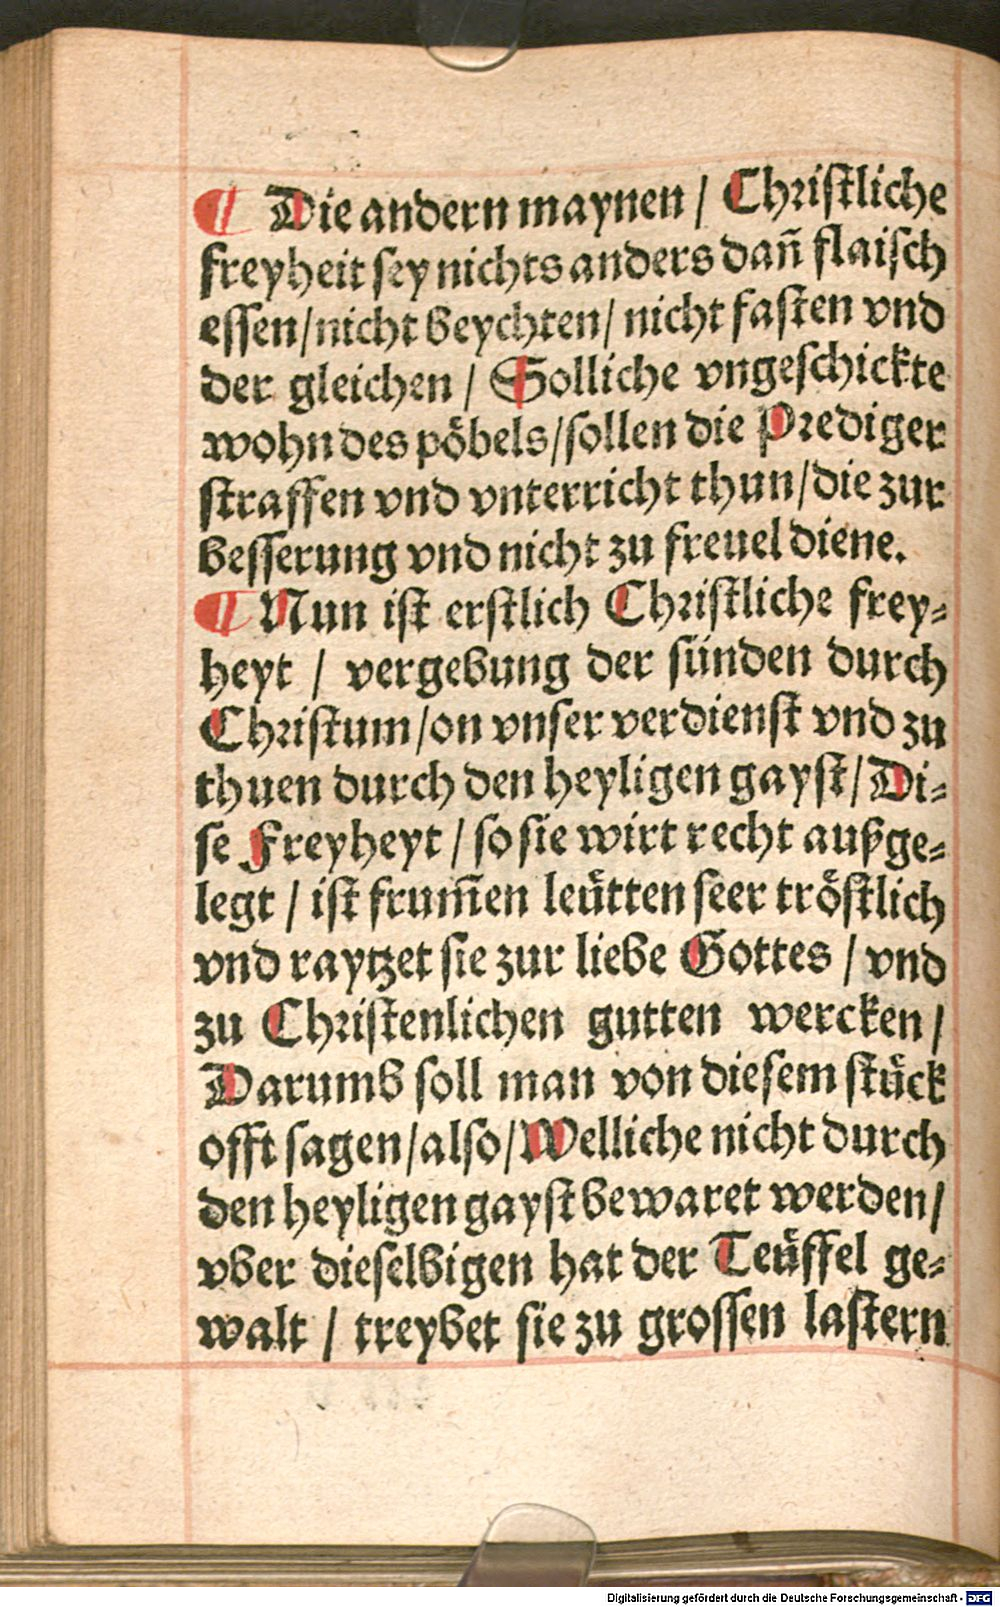 ¶ Die andern maynen / Christliche
freyheit sey nichts anders dañ flaisch
essen/nicht beychten/ nicht fasten vnd
der gleichen / Solliche vngeschickte
wohn des pöbels/sollen die Prediger
straffen vnd vnterricht thun/die zur
besserung vnd nicht zu freuel diene.
¶ Nun ist erstlich Christliche frey⸗
heyt / vergebung der sünden durch
Christum/on vnser verdienst vnd zu
thuen durch den heyligen gayst/Di⸗
se Freyheyt / so sie wirt recht außge⸗
legt / ist frum̃en leütten seer tröstlich
vnd raytzet sie zur liebe Gottes / vnd
zu Christenlichen gutten wercken/
Darumb soll man von diesem stück
offt sagen/also/Welliche nicht durch
den heyligen gayst bewaret werden/
vber dieselbigen hat der Teüffel ge⸗
walt / treybet sie zu grossen lastern
Digitalisierung gefördert durch die Deutsche Forschungsgemeinschaft - DFG